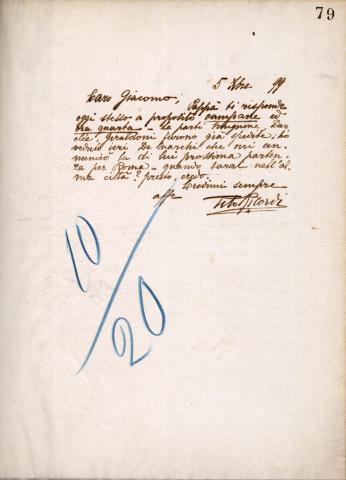 79
5 Xbre 99
Caro Giacomo, Pappà ti risponde
oggi stesso a proposito campane ed
8va quarta – le parti Darclée,
Giraldoni furono già spedite; ho
veduto ieri De Marchi che mi an-
nunciò la di lui prossima parten-
za per Roma – quando sarai nell'al-
ma città? presto, credo.
Credimi sempre
aff
Tito Ricordi
10/20